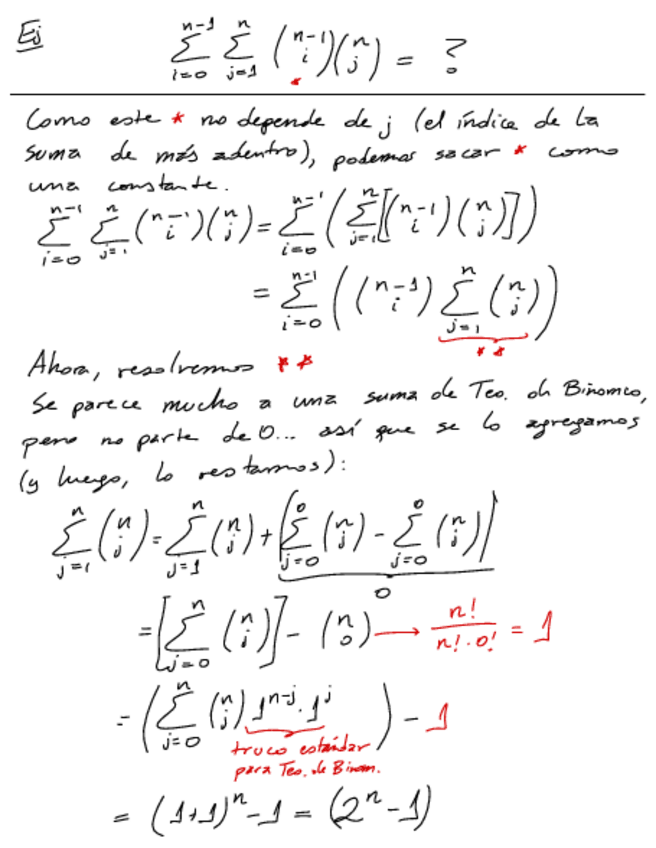 Ej
\sum_{i=0}^{n-1} \sum_{j=1}^{n} \binom{n-1}{i} \binom{n}{j} = ?
*
Como este * no depende de j (el índice de la
suma de más adentro), podemos sacar * como
una constante.
\sum_{i=0}^{n-1} \sum_{j=1}^{n} \binom{n-1}{i} \binom{n}{j} = \sum_{i=0}^{n-1} \left( \sum_{j=1}^{n} \left[ \binom{n-1}{i} \binom{n}{j} \right] \right)
= \sum_{i=0}^{n-1} \left( \binom{n-1}{i} \sum_{j=1}^{n} \binom{n}{j} \right)
**
Ahora, resolvemos **
Se parece mucho a una suma de Teo. de Binomio,
pero no parte de 0... así que se lo agregamos
(y luego, lo restamos):
\sum_{j=1}^{n} \binom{n}{j} = \sum_{j=1}^{n} \binom{n}{j} + \left[ \sum_{j=0}^{0} \binom{n}{j} - \sum_{j=0}^{0} \binom{n}{j} \right]
0
= \left[ \sum_{j=0}^{n} \binom{n}{j} \right] - \binom{n}{0} → \frac{n!}{n! \cdot 0!} = 1
= \left( \sum_{j=0}^{n} \binom{n}{j} 1^{n-j} \cdot 1^{j} \right) - 1
truco estándar
para Teo. de Binom.
= (1+1)^n - 1 = (2^n - 1)